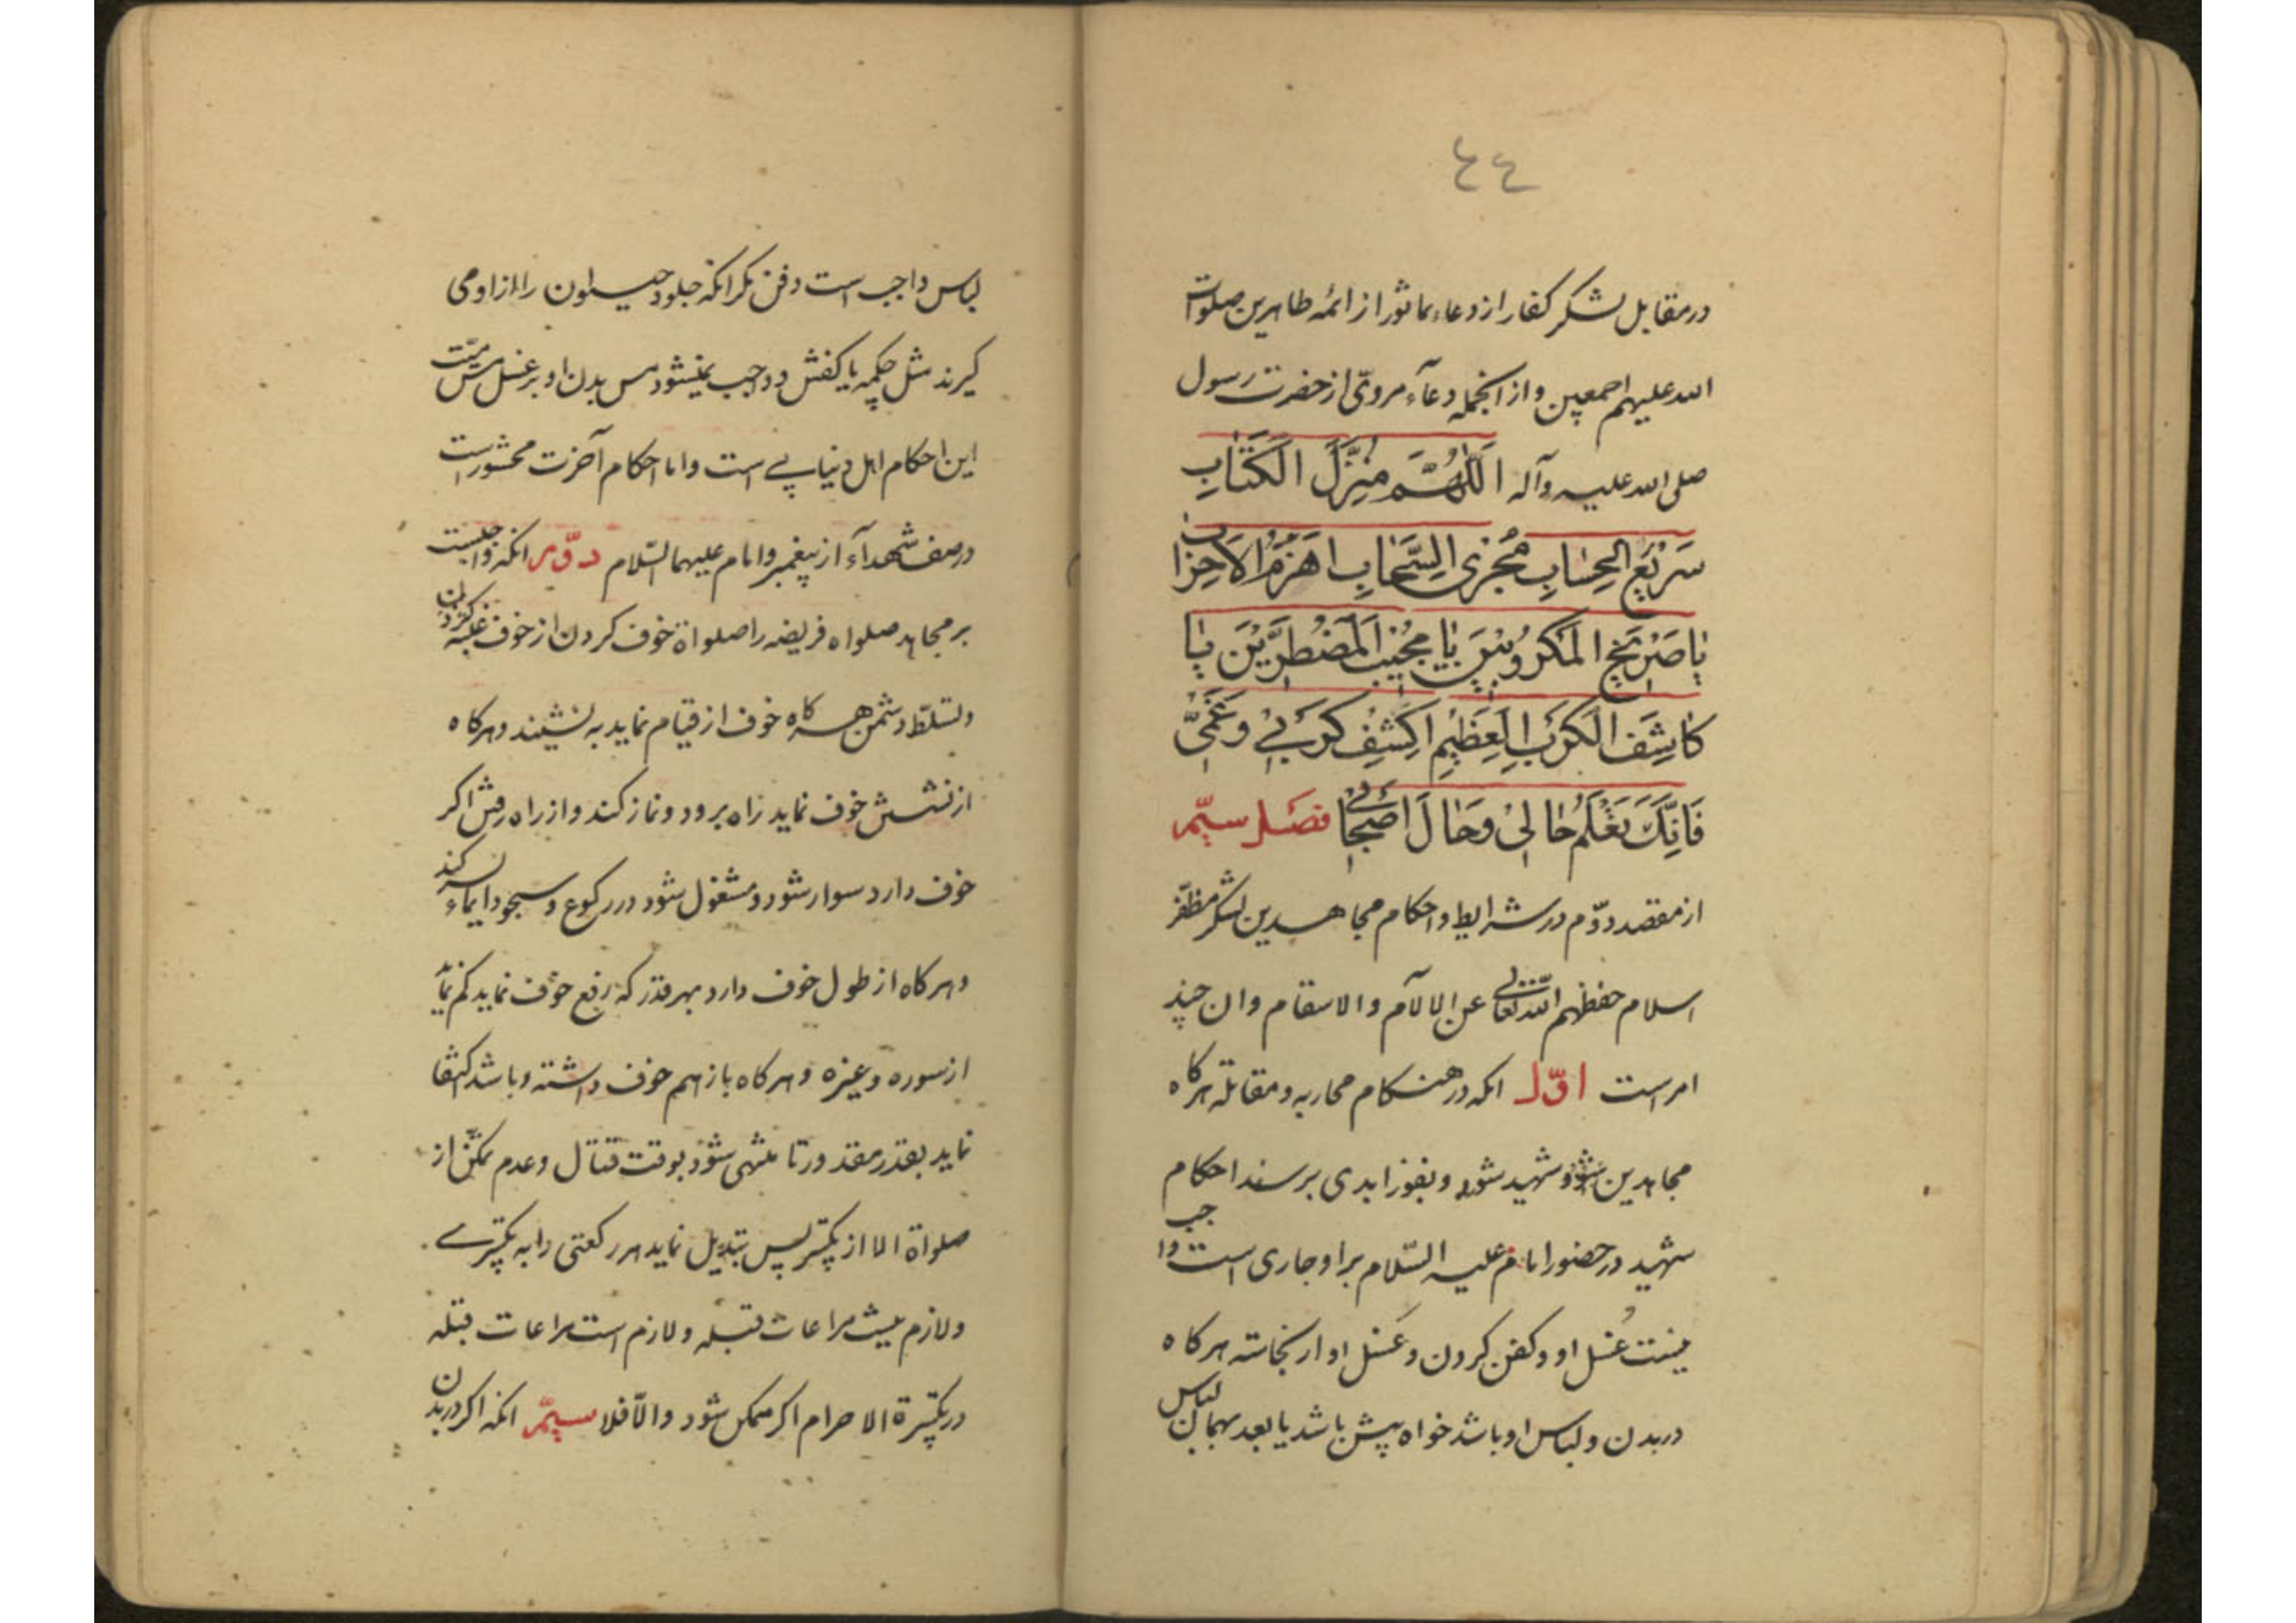 ٤٤
در مقابل لشکر کفار از دعاء ماثور از ائمه طاهرین صلوات
الله علیهم اجمعین و از انجمله دعآء مرویّ از حضرت رسول
صلی الله علیه وآله اللّٰهُمَّ مُنْزِلَ الْکِتٰابِ
سَرِیْعَ الْحِسٰابِ مُجْرِی السَّحٰابِ اِهْزِمُ الاَحْزٰابَ
یٰا صَرِیْخَ الْمَکْرُوبِیْنَ یٰا مُجْیْبَ الْمُضْطَرِّیْنَ یٰا
کٰاشِفَ الْکَرْبِ الْعَظِیْمِ اکْشِفْ کَرْبِیْ وَغَمِّیْ
فَاِنَّکَ تَعْلَمُ حٰالِیْ وَحٰالَ اَصْحٰابِی فصل سیّم
از مقصد دوّم در شرایط و احکام مجاهدین لشکر مظفّر
اسلام حفظهم الله تعالی عن الالآم والاسقام وان چند
امر است اوّل انکه در هنکام محاربه و مقاتله هرکاه
مجاهدین شهید شود و بفوز ابدی برسند احکام
شهید در حضور امام علیه السّلام بر او جاری است واجب
نیست غُسل او و کفن کردن و غَسل او از نجاسته هرکاه
در بدن و لباس او باشد خواه پیش باشد یا بعد بهمان لباس
لباس واجب است دفن مکر انکه جلود حیوان را از او می
کیرند مثل چکمه یا کفش و واجب نمیشود مس بدن او بر غسل مس میّت
این احکام اهل دنیاییست و اما احکام آخرت محشور است
در صف شهدآء از پیغمبر و امام علیهما السّلام دوّم انکه واجبست
بر مجاهد صلواه فریضه را صلواة خوف کردن از خوف غلبه کردن
و تسلّط دشمن هرکاه خوف از قیام نماید به نشیند و هرکاه
از نشستن خوف نماید راه برود و نماز کند و از راه رفتن اکر
خوف دارد سوار شود و مشغول شود در رکوع و سجود ایماء بسر کند
و هرکاه از طول خوف دارد بهر قدر که رفع خوف نماید کم نماید
از سوره و غیره و هرکاه باز هم خوف داشته و باشد اکتفا
نماید بقدر مقدور تا منتهی شود بوقت قتال و عدم تمکّن از
صلواة الا از تکبیر پس تبدیل نماید هر رکعتی را به تکبیرے
ولازم نیست مراعات قبله و لازم است مراعات قبله
در تکبیرة الاحرام اکر ممکن شود والّا فلا سیّم انکه اکر در بدن